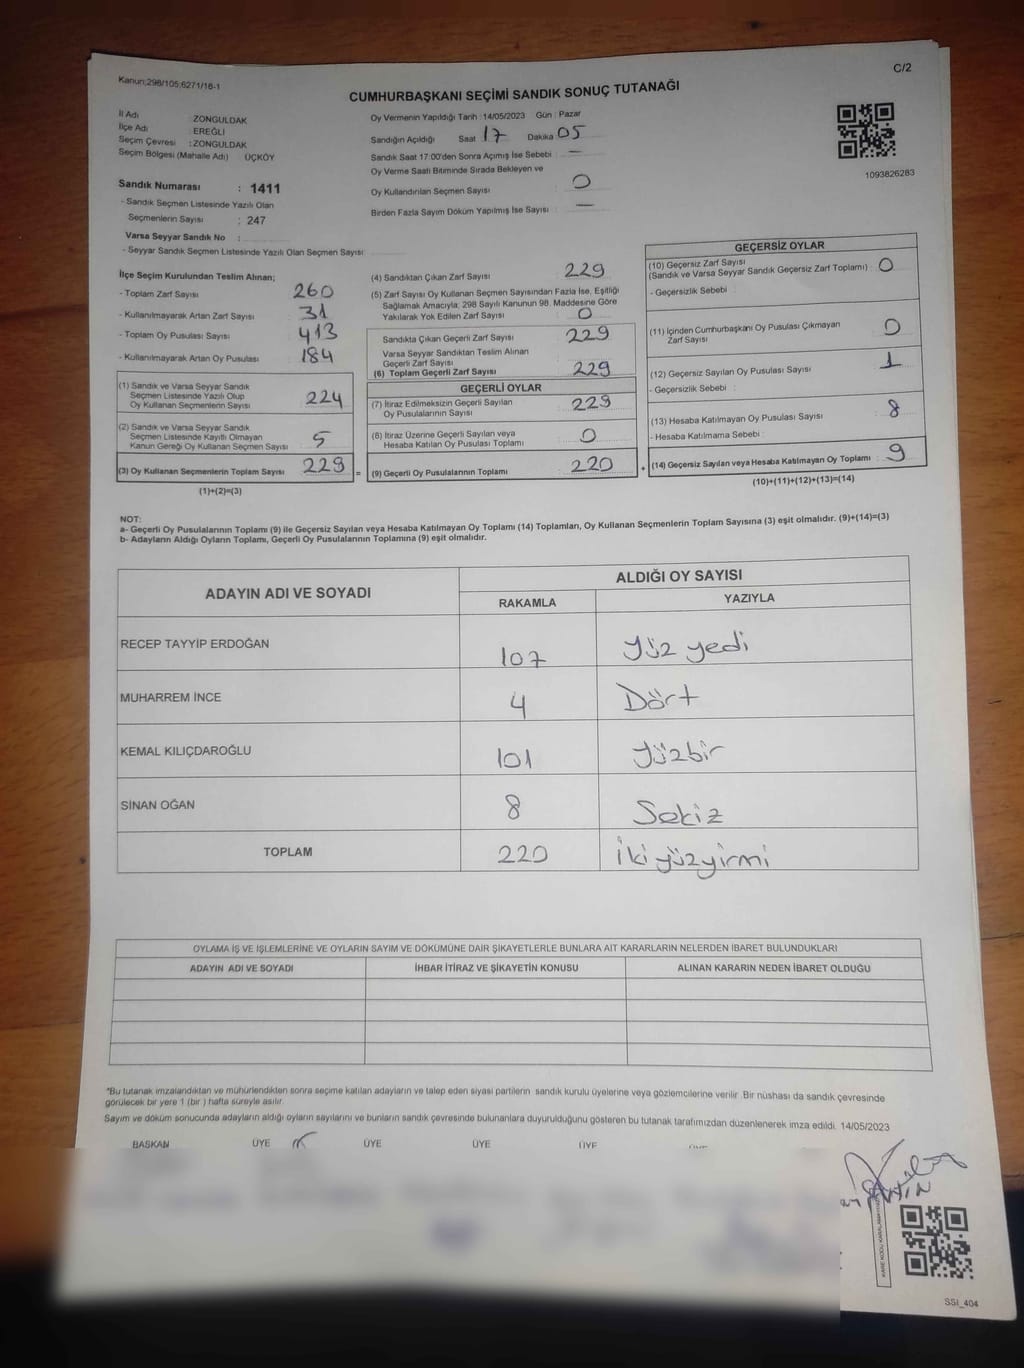 Kanun;298/105;6271/18-1
C/2
CUMHURBAŞKANI SEÇİMİ SANDIK SONUÇ TUTANAĞI
İl Adı : ZONGULDAK
İlçe Adı : EREĞLİ
Seçim Çevresi : ZONGULDAK
Seçim Bölgesi (Mahalle Adı) ÜÇKÖY
Sandık Numarası : 1411
- Sandık Seçmen Listesinde Yazılı Olan
Seçmenlerin Sayısı : 247
Varsa Seyyar Sandık No :
- Seyyar Sandık Seçmen Listesinde Yazılı Olan Seçmen Sayısı
Oy Vermenin Yapıldığı Tarih : 14/05/2023 Gün : Pazar
Sandığın Açıldığı Saat 17 Dakika 05
Sandık Saat 17:00'den Sonra Açımış İse Sebebi : —
Oy Verme Saati Bitiminde Sırada Bekleyen ve
Oy Kullandırılan Seçmen Sayısı : 0
Birden Fazla Sayım Döküm Yapılmış İse Sayısı : —
1093826283
İlçe Seçim Kurulundan Teslim Alınan;
- Toplam Zarf Sayısı 260
- Kullanılmayarak Artan Zarf Sayısı 31
- Toplam Oy Pusulası Sayısı 413
- Kullanılmayarak Artan Oy Pusulası 184
(1) Sandık ve Varsa Seyyar Sandık
Seçmen Listesinde Yazılı Olup
Oy Kullanan Seçmenlerin Sayısı 224
(2) Sandık ve Varsa Seyyar Sandık
Seçmen Listesinde Kayıtlı Olmayan
Kanun Gereği Oy Kullanan Seçmen Sayısı 5
(3) Oy Kullanan Seçmenlerin Toplam Sayısı 229 =
(1)+(2)=(3)
(4) Sandıktan Çıkan Zarf Sayısı 229
(5) Zarf Sayısı Oy Kullanan Seçmen Sayısından Fazla İse, Eşitliği
Sağlamak Amacıyla; 298 Sayılı Kanunun 98. Maddesine Göre
Yakılarak Yok Edilen Zarf Sayısı : 0
Sandıkta Çıkan Geçerli Zarf Sayısı 229
Varsa Seyyar Sandıktan Teslim Alınan
Geçerli Zarf Sayısı
(6) Toplam Geçerli Zarf Sayısı 229
GEÇERLİ OYLAR
(7) İtiraz Edilmeksizin Geçerli Sayılan
Oy Pusulalarının Sayısı 229
(8) İtiraz Üzerine Geçerli Sayılan veya
Hesaba Katılan Oy Pusulası Toplamı 0
(9) Geçerli Oy Pusulalarının Toplamı 220 +
GEÇERSİZ OYLAR
(10) Geçersiz Zarf Sayısı
(Sandık ve Varsa Seyyar Sandık Geçersiz Zarf Toplamı) : 0
- Geçersizlik Sebebi :
(11) İçinden Cumhurbaşkanı Oy Pusulası Çıkmayan
Zarf Sayısı 0
(12) Geçersiz Sayılan Oy Pusulası Sayısı : 1
- Geçersizlik Sebebi :
(13) Hesaba Katılmayan Oy Pusulası Sayısı : 8
- Hesaba Katılmama Sebebi :
(14) Geçersiz Sayılan veya Hesaba Katılmayan Oy Toplamı : 9
(10)+(11)+(12)+(13)=(14)
NOT:
a- Geçerli Oy Pusulalarının Toplamı (9) ile Geçersiz Sayılan veya Hesaba Katılmayan Oy Toplamı (14) Toplamları, Oy Kullanan Seçmenlerin Toplam Sayısına (3) eşit olmalıdır. (9)+(14)=(3)
b- Adayların Aldığı Oyların Toplamı, Geçerli Oy Pusulalarının Toplamına (9) eşit olmalıdır.
ADAYIN ADI VE SOYADI
ALDIĞI OY SAYISI
RAKAMLA YAZIYLA
RECEP TAYYİP ERDOĞAN 107 Yüz yedi
MUHARREM İNCE 4 Dört
KEMAL KILIÇDAROĞLU 101 Yüzbir
SİNAN OĞAN 8 Sekiz
TOPLAM 220 İkiyüzyirmi
OYLAMA İŞ VE İŞLEMLERİNE VE OYLARIN SAYIM VE DÖKÜMÜNE DAİR ŞİKAYETLERLE BUNLARA AİT KARARLARIN NELERDEN İBARET BULUNDUKLARI
ADAYIN ADI VE SOYADI İHBAR İTİRAZ VE ŞİKAYETİN KONUSU ALINAN KARARIN NEDEN İBARET OLDUĞU
*Bu tutanak imzalandıktan ve mühürlendikten sonra seçime katılan adayların ve talep eden siyasi partilerin sandık kurulu üyelerine veya gözlemcilerine verilir. Bir nüshası da sandık çevresinde
görülecek bir yere 1 (bir ) hafta süreyle asılır.
Sayım ve döküm sonucunda adayların aldığı oyların sayılarını ve bunların sandık çevresinde bulunanlara duyurulduğunu gösteren bu tutanak tarafımızdan düzenlenerek imza edildi. 14/05/2023
BAŞKAN ÜYE ÜYE ÜYE ÜYE
SSI_404